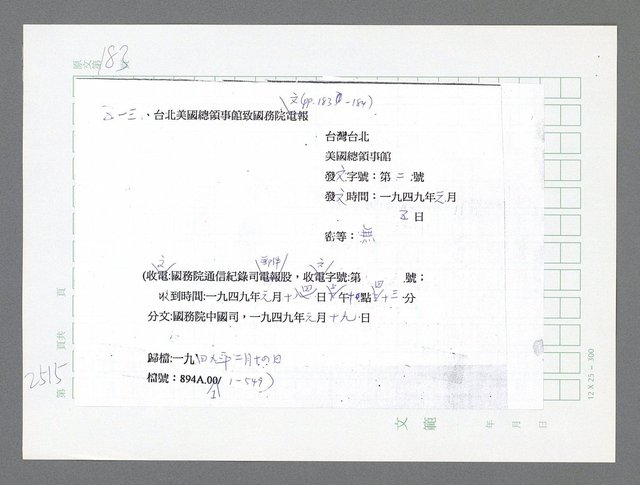 原文第183頁
文(pp.183-184)
五一三、台北美國總領事館致國務院電報
台灣台北
美國總領事館
發文字號：第二號
發文時間：一九四九年元月
五日
密等：無
文 郵件 文
(收電:國務院通信紀錄司電報股，收電字號:第 號：
收到時間:一九四九年元月十 日 午 點 十三分
分文:國務院中國司，一九四九年元月十九日
歸檔:一九四九年二月 日
檔號：894A.00/ 1-549)
第 頁共 頁
2515
12 X 25 = 300
文範
年 月 日